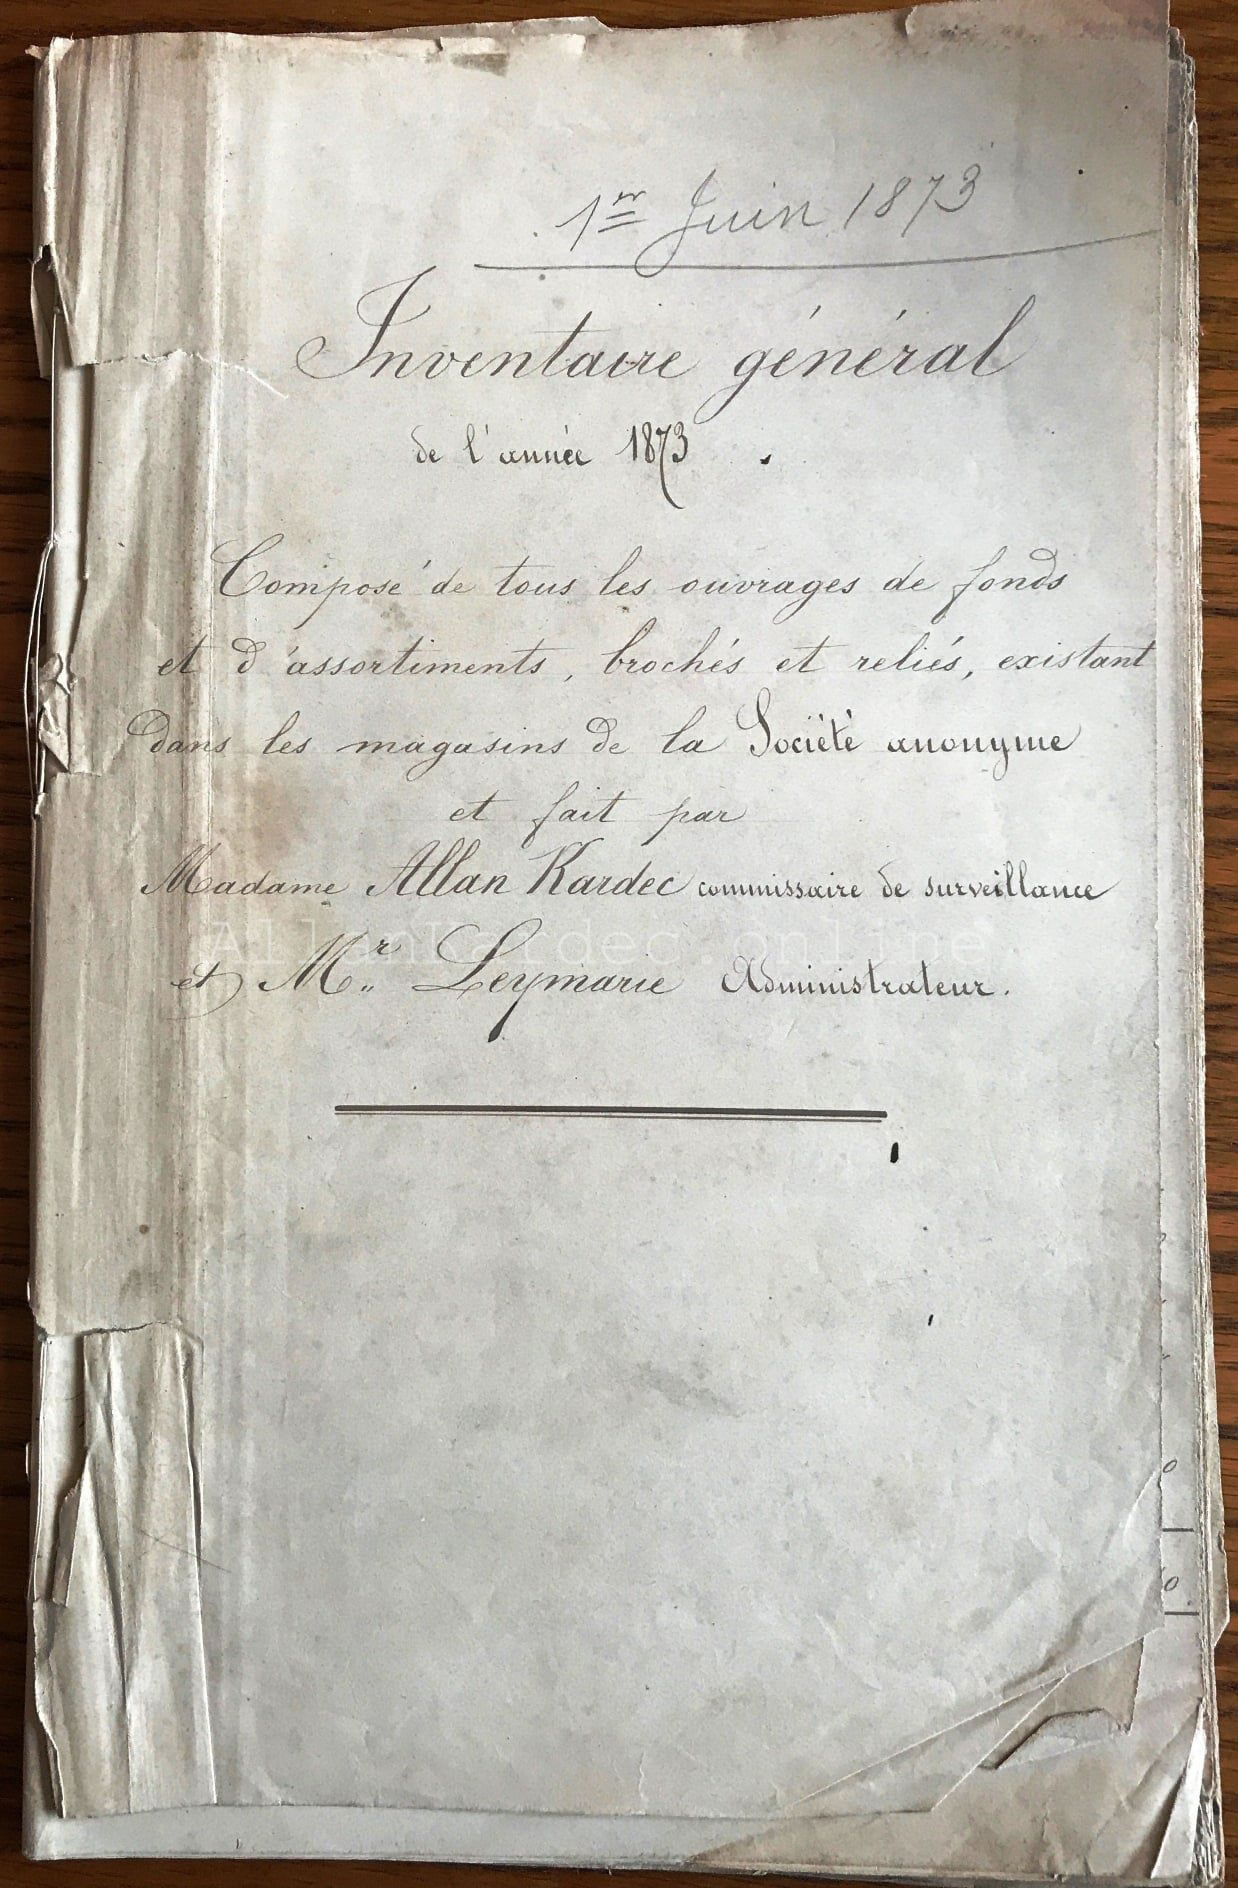 1er Juin 1873
Inventaire général
de l'année 1873.
Composé de tous les ouvrages de fonds
et d'assortiments, brochés et reliés, existant
dans les magasins de la Société anonyme
et fait par
Madame Allan Kardec commissaire de surveillance
AllanKardec.online
et Mr. Leymarie Administrateur.
0
0